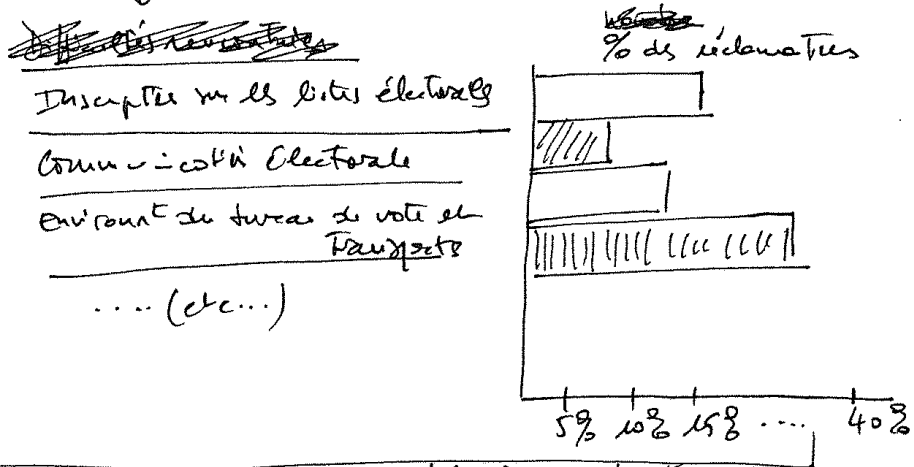 % des réclamations
Inscription sur les listes électorales
Communication Électorale
environt du bureau de vote et
Transports
.... (etc...)
5% 10% 15% .... 40%